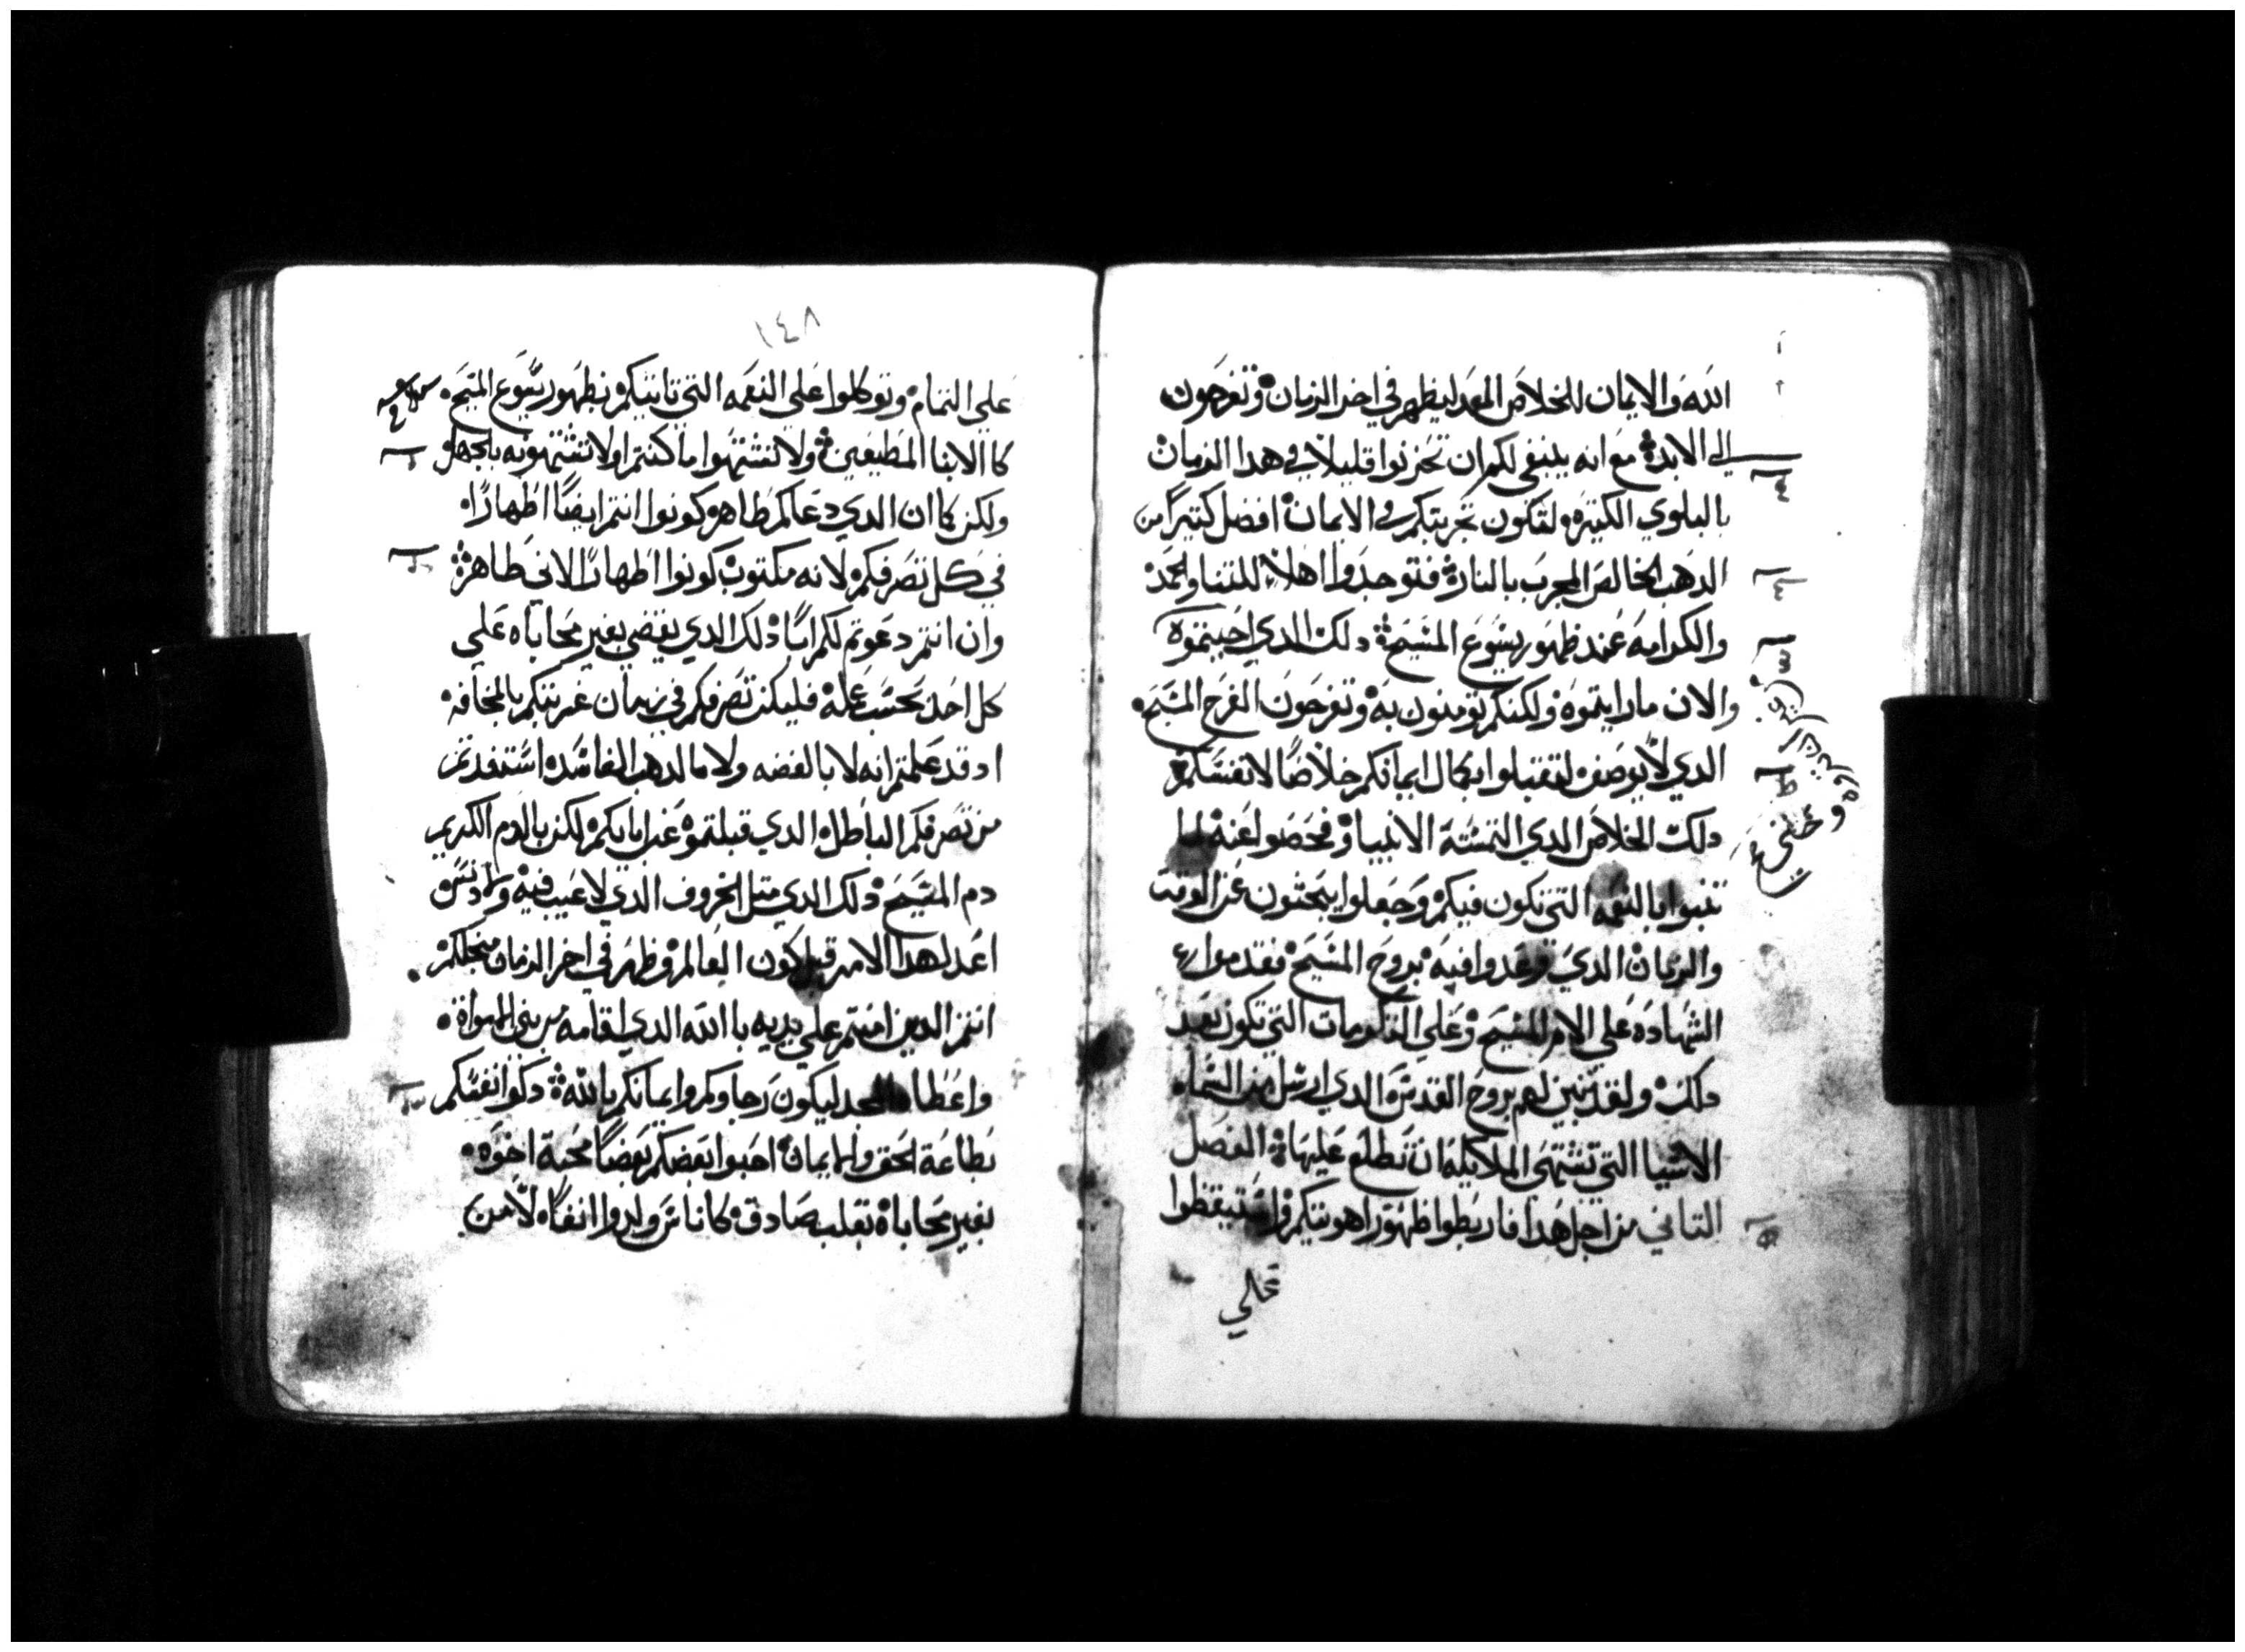 الله والايمان للخلاص المعد ليظهر في اخر الزمان وتفرحون
الي الابد مع انه ينبغي لكم ان تحزنوا قليلا في هدا الزمان
بالبلوي الكتيره ولتكون تجربتكم في الايمان افضل كتيرا من
الدهب الخالص المجرب بالنار فتوجدوا اهلا للتنا والحمد
والكرامه عند ظهور يسوع المسيح دلك الدي احببتموه
والان ما رايتموه ولكنكم تومنون به وتفرحون الفرح المسيحه
الدي لا يوصف لتقتبلوا بكمال ايمانكم خلاصا لانفسكم
دلك الخلاص الدي التمسته الانبيا وفحصوا عنه لما
تنبوا بالنعمه التي تكون فيكم وجعلوا يبحثون عن الوقت
والزمان الدي وعدوا فيه بروح المسيح فقدموا
الشهاده علي الام المسيح وعلي الكرومات التي تكون بعد
دلك ولقد تبين لهم بروح القدس الدي ارسل من السما
الاشيا التي تشتهي الملايكه ان تطلع عليها الفصل
التاني من اجل هدا فاربطوا ظهور اهوييتكم واستيقظوا
علي
١٤٨
علي التمام وتوكلوا علي النعمه التي تاتيكم بظهور يسوع المسيح
كا الابنا المطيعين ولا تشتهوا ما كنتم اولا تشتهونه بالجهل
ولكن كما ان الدي دعاكم طاهر كونوا انتم ايضا اطهارا
في كل تصرفكم لانه مكتوب كونوا اطهارا لاني طاهر
وان انتم دعوتم لكم ابا دلك الدي يقضي بغير محاباه علي
كل احد بحسب عمله فليكن تصرفكم في زمان غربتكم بالمخافه
اد قد علمتم انه لا بالفضه ولا بالدهب الفاسده استنفديتم
من تصرفكم الباطل الدي قبلتموه عن ابايكم لكن بالدم الكريم
دم المسيح دلك الدي متل الخروف الدي لا عيب فيه ولا دنس
اعد لهدا الامر قبل كون العالم وظهر في اخر الزمان من اجلكم
انتم الدين امنتم علي يديه باالله الدي اقامه من بين الاموات
واعطاه المجد ليكون رجاوكم وايمانكم بالله دكوا انفسكم
بطاعة الحق والايمان احبوا بعضكم بعضا محبة اخوه
بغير محاباة بقلب صادق كاناس ولدوا انفا لا من